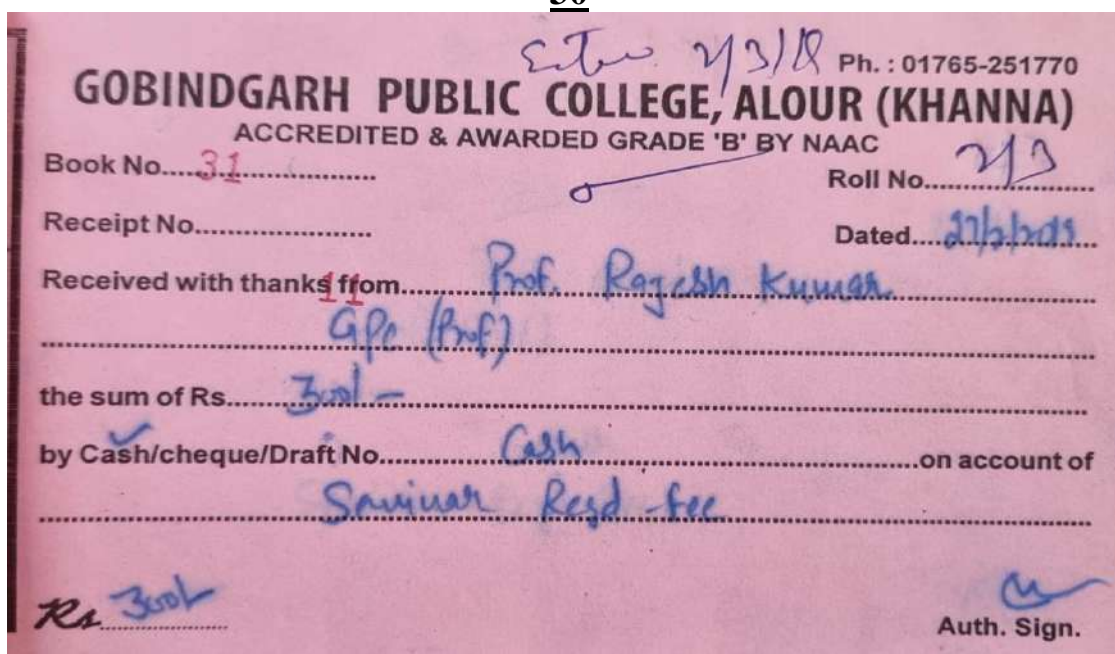 30
Enter 2/3/18 Ph. : 01765-251770
GOBINDGARH PUBLIC COLLEGE, ALOUR (KHANNA)
ACCREDITED & AWARDED GRADE 'B' BY NAAC
Book No.....31.................. Roll No.....................
Receipt No...................... Dated....27/2/....
Received with thanks from.......... Prof. Rajesh Kumar
11
GPC (Prof)
the sum of Rs.........300/-
by Cash/cheque/Draft No............ Cash ............on account of
Seminar Regd fee
Rs 300/-
Auth. Sign.